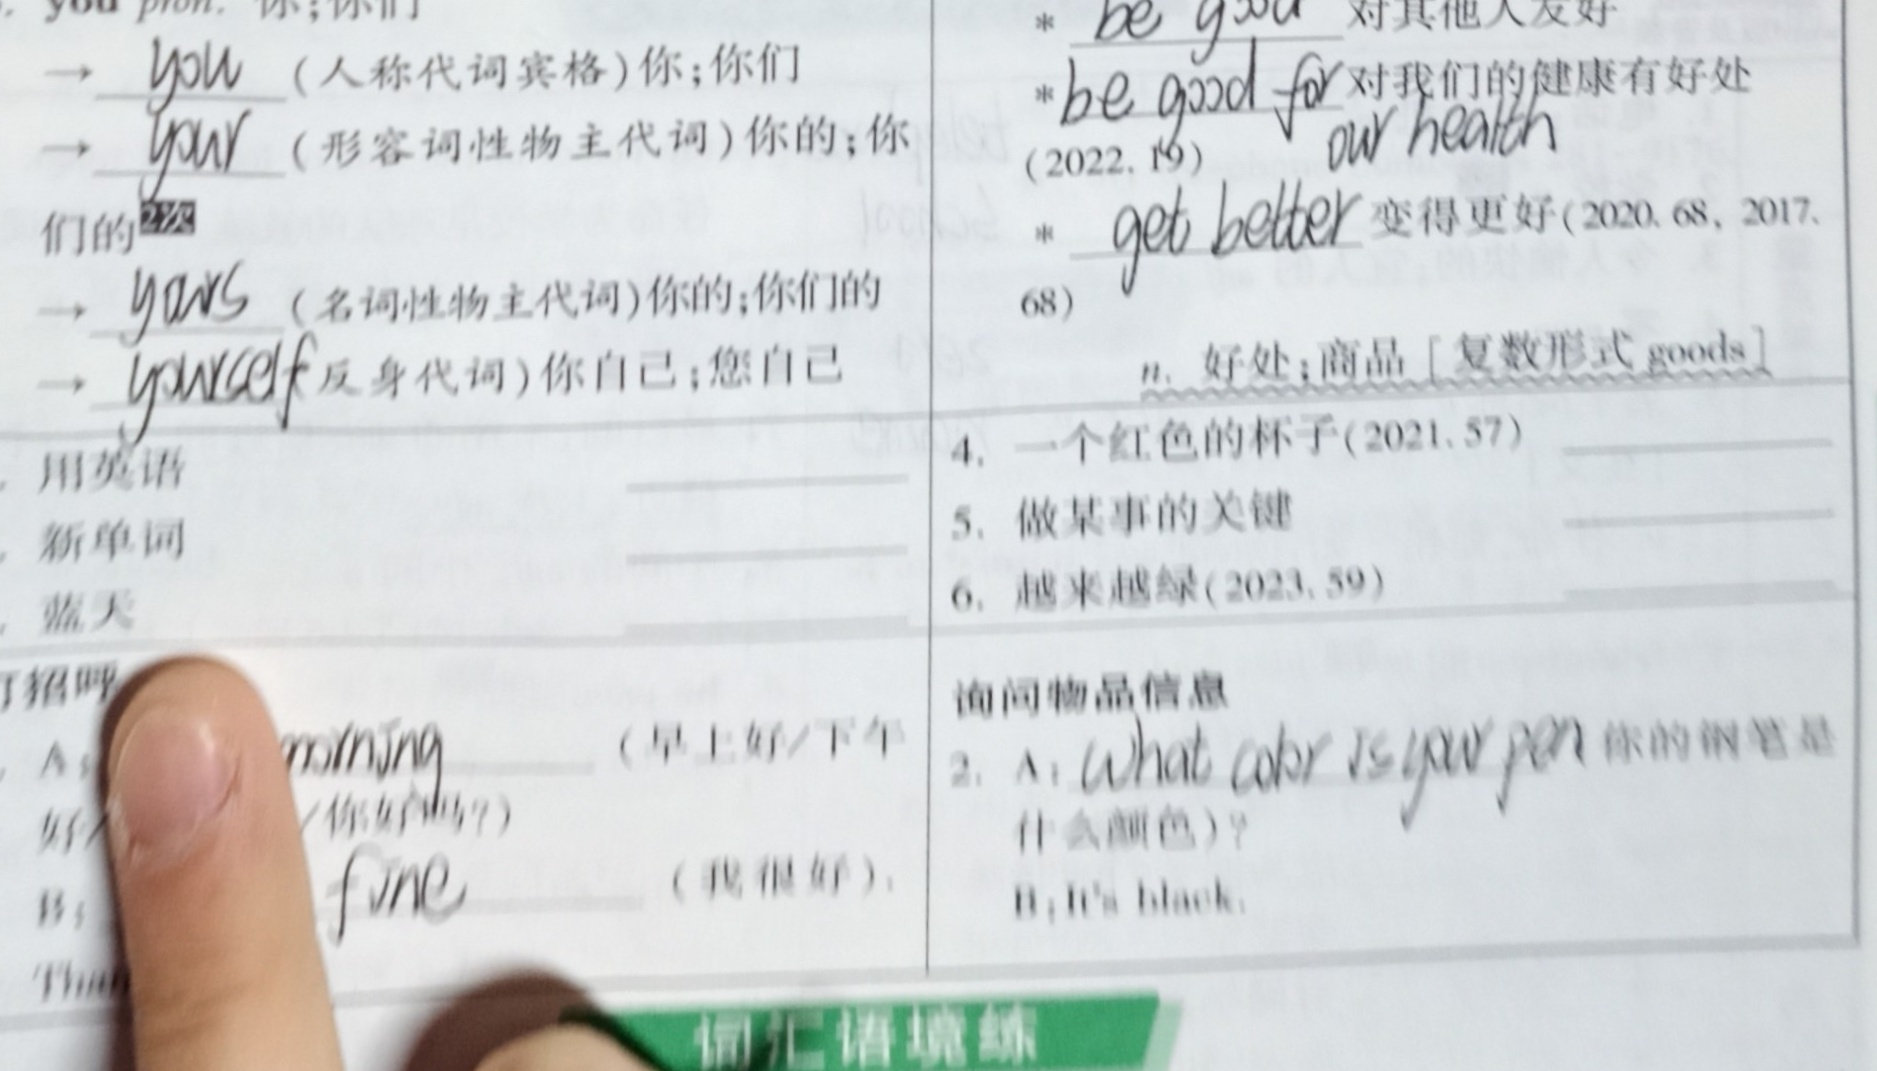 you pron. 你;你们
→ you (人称代词宾格)你;你们
→ your (形容词性物主代词)你的;你
们的
→ yours (名词性物主代词)你的;你们的
→ yourself 反身代词)你自己;您自己
用英语
新单词
蓝天
打招呼
A: morning (早上好/下午
好/ /你好吗?)
B: fine (我很好).
* be good 对其他人友好
* be good for 对我们的健康有好处
our health
(2022.19)
* get better 变得更好(2020.68, 2017.
68)
n. 好处;商品[复数形式 goods]
4. 一个红色的杯子(2021.57)
5. 做某事的关键
6. 越来越绿(2023.59)
询问物品信息
2. A: What color is your pen 你的钢笔是
什么颜色)?
B: It's black.
词汇语境练